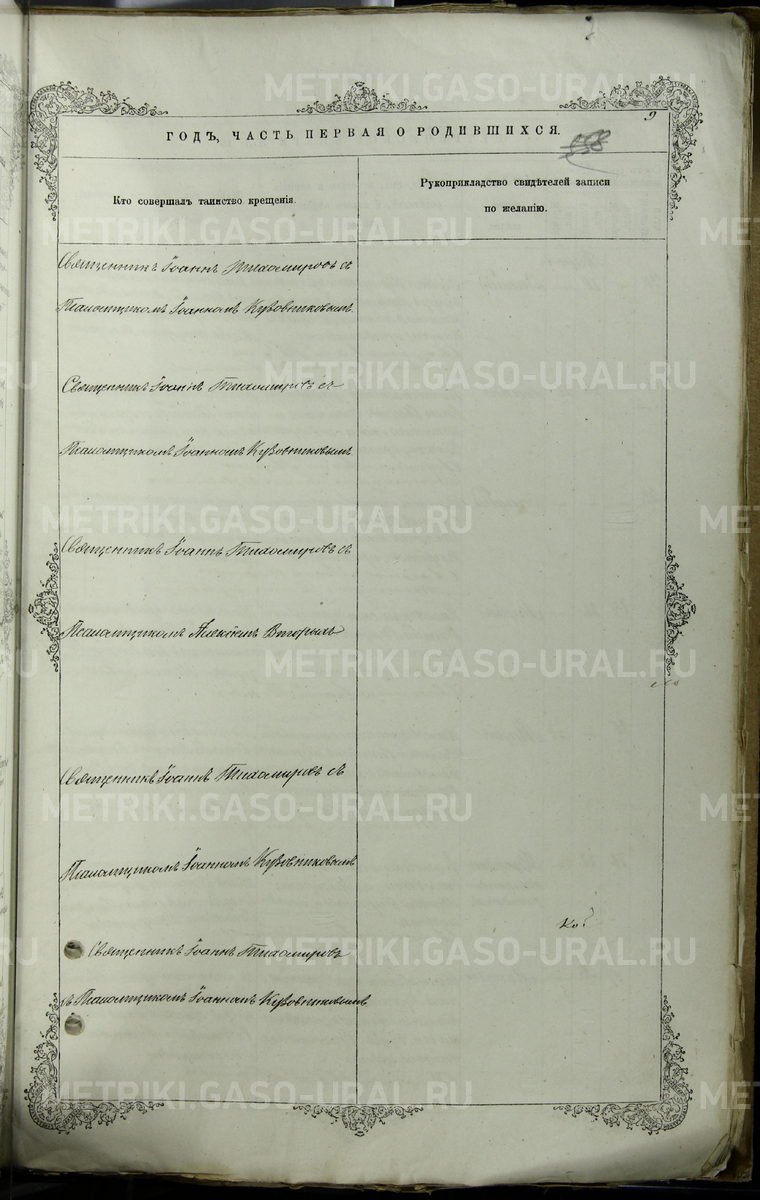 9
558
ГОДЪ, ЧАСТЬ ПЕРВАЯ О РОДИВШИХСЯ.
Кто совершалъ таинство крещенія.
Рукоприкладство свидѣтелей записи
по желанію.
Священникъ Іоаннъ Тихомировъ съ
Псаломщикомъ Іоанномъ Кузовниковымъ.
Священникъ Іоаннъ Тихомировъ съ
Псаломщикомъ Іоанномъ Кузовниковымъ
Священникъ Іоаннъ Тихомировъ съ
Псаломщикомъ Алексѣемъ Вторыхъ
Священникъ Іоаннъ Тихомировъ съ
Псаломщикомъ Іоанномъ Кузовниковымъ
Священникъ Іоаннъ Тихомировъ
съ Псаломщикомъ Іоанномъ Кузовниковымъ
METRIKI.GASO-URAL.RU